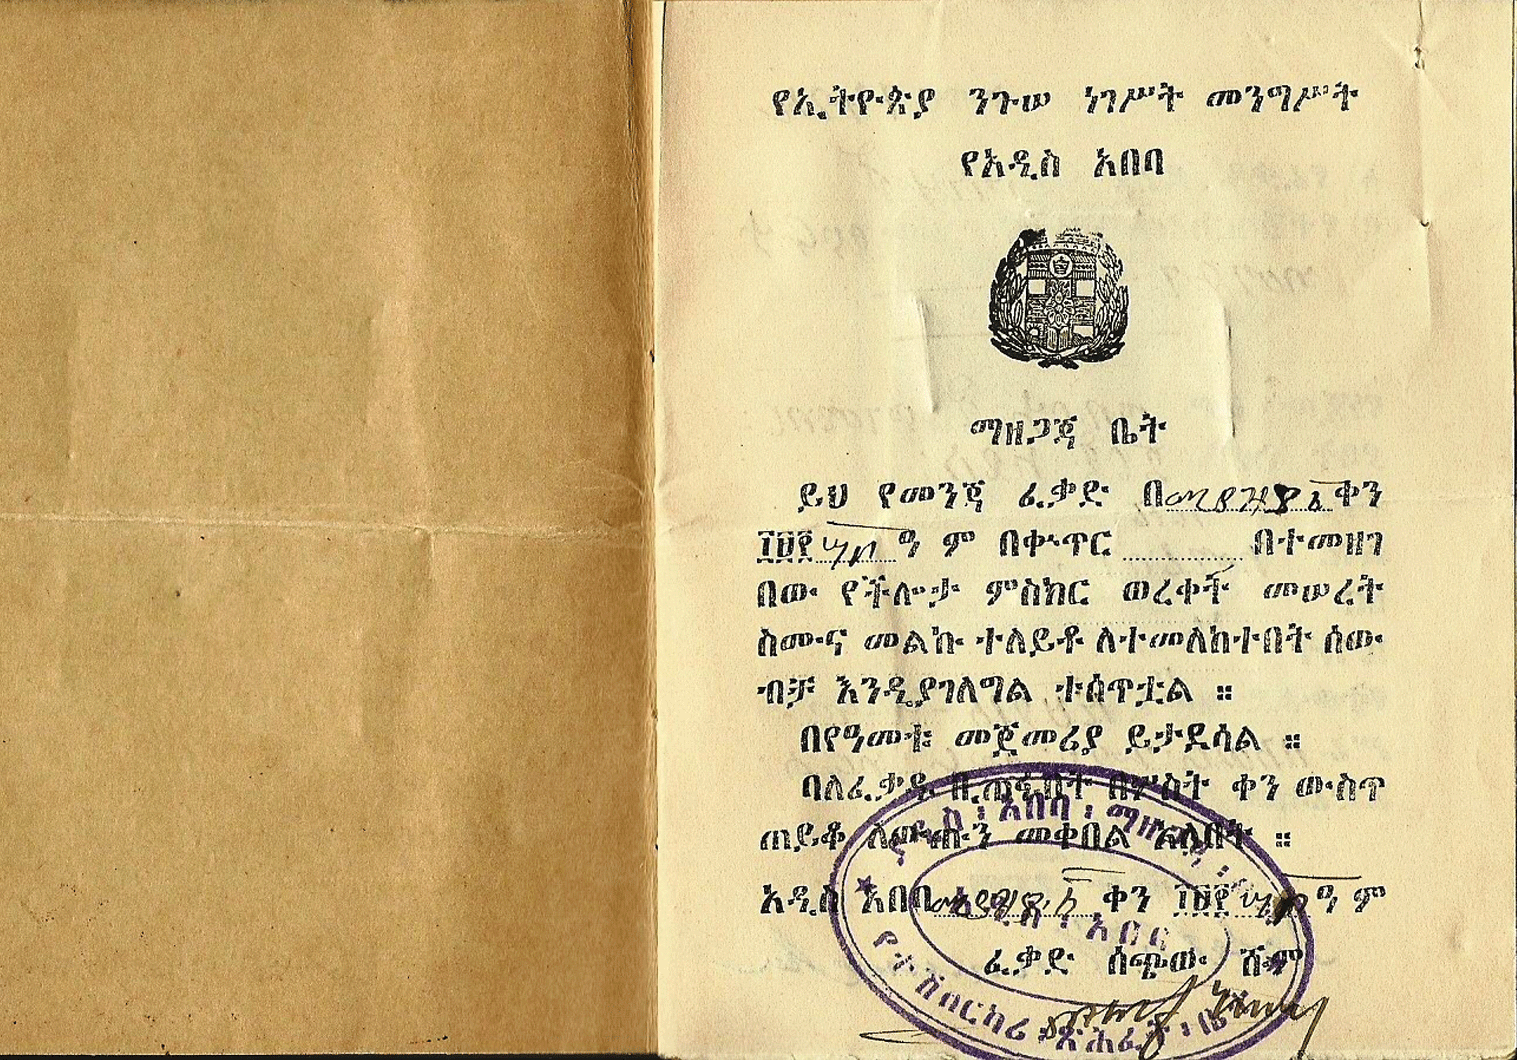 የኢትዮጵያ ንጉሠ ነገሥት መንግሥት
የአዲስ አበባ
ማዘጋጃ ቤት
ይህ የመንጃ ፈቃድ በሚያዝያ ቀን
፲፱፻ ዓ ም በቍጥር በተመዘገ
በው የችሎታ ምስክር ወረቀች መሠረት
ስሙና መልኩ ተለይቶ ለተመለከተበት ሰው
ብቻ እንዲያገለግል ተሰጥቷል ።
በየዓመቱ መጀመሪያ ይታደሳል ።
ባለፈቃዱ ቢጠፋበት በ፫ስት ቀን ውስጥ
ጠይቆ ለውጡን መቀበል አለበት ።
አዲስ አበባ ሚያዝያ ቀን ፲፱፻ ዓ ም
ፈቃድ ሰጭው ሹም
አዲስ ፡ አበባ ፡ ማዘጋጃ ፡
አዲስ ፡ አበባ
የተሽከርካሪ ፡ ጽሕፈት ፡ ቤት